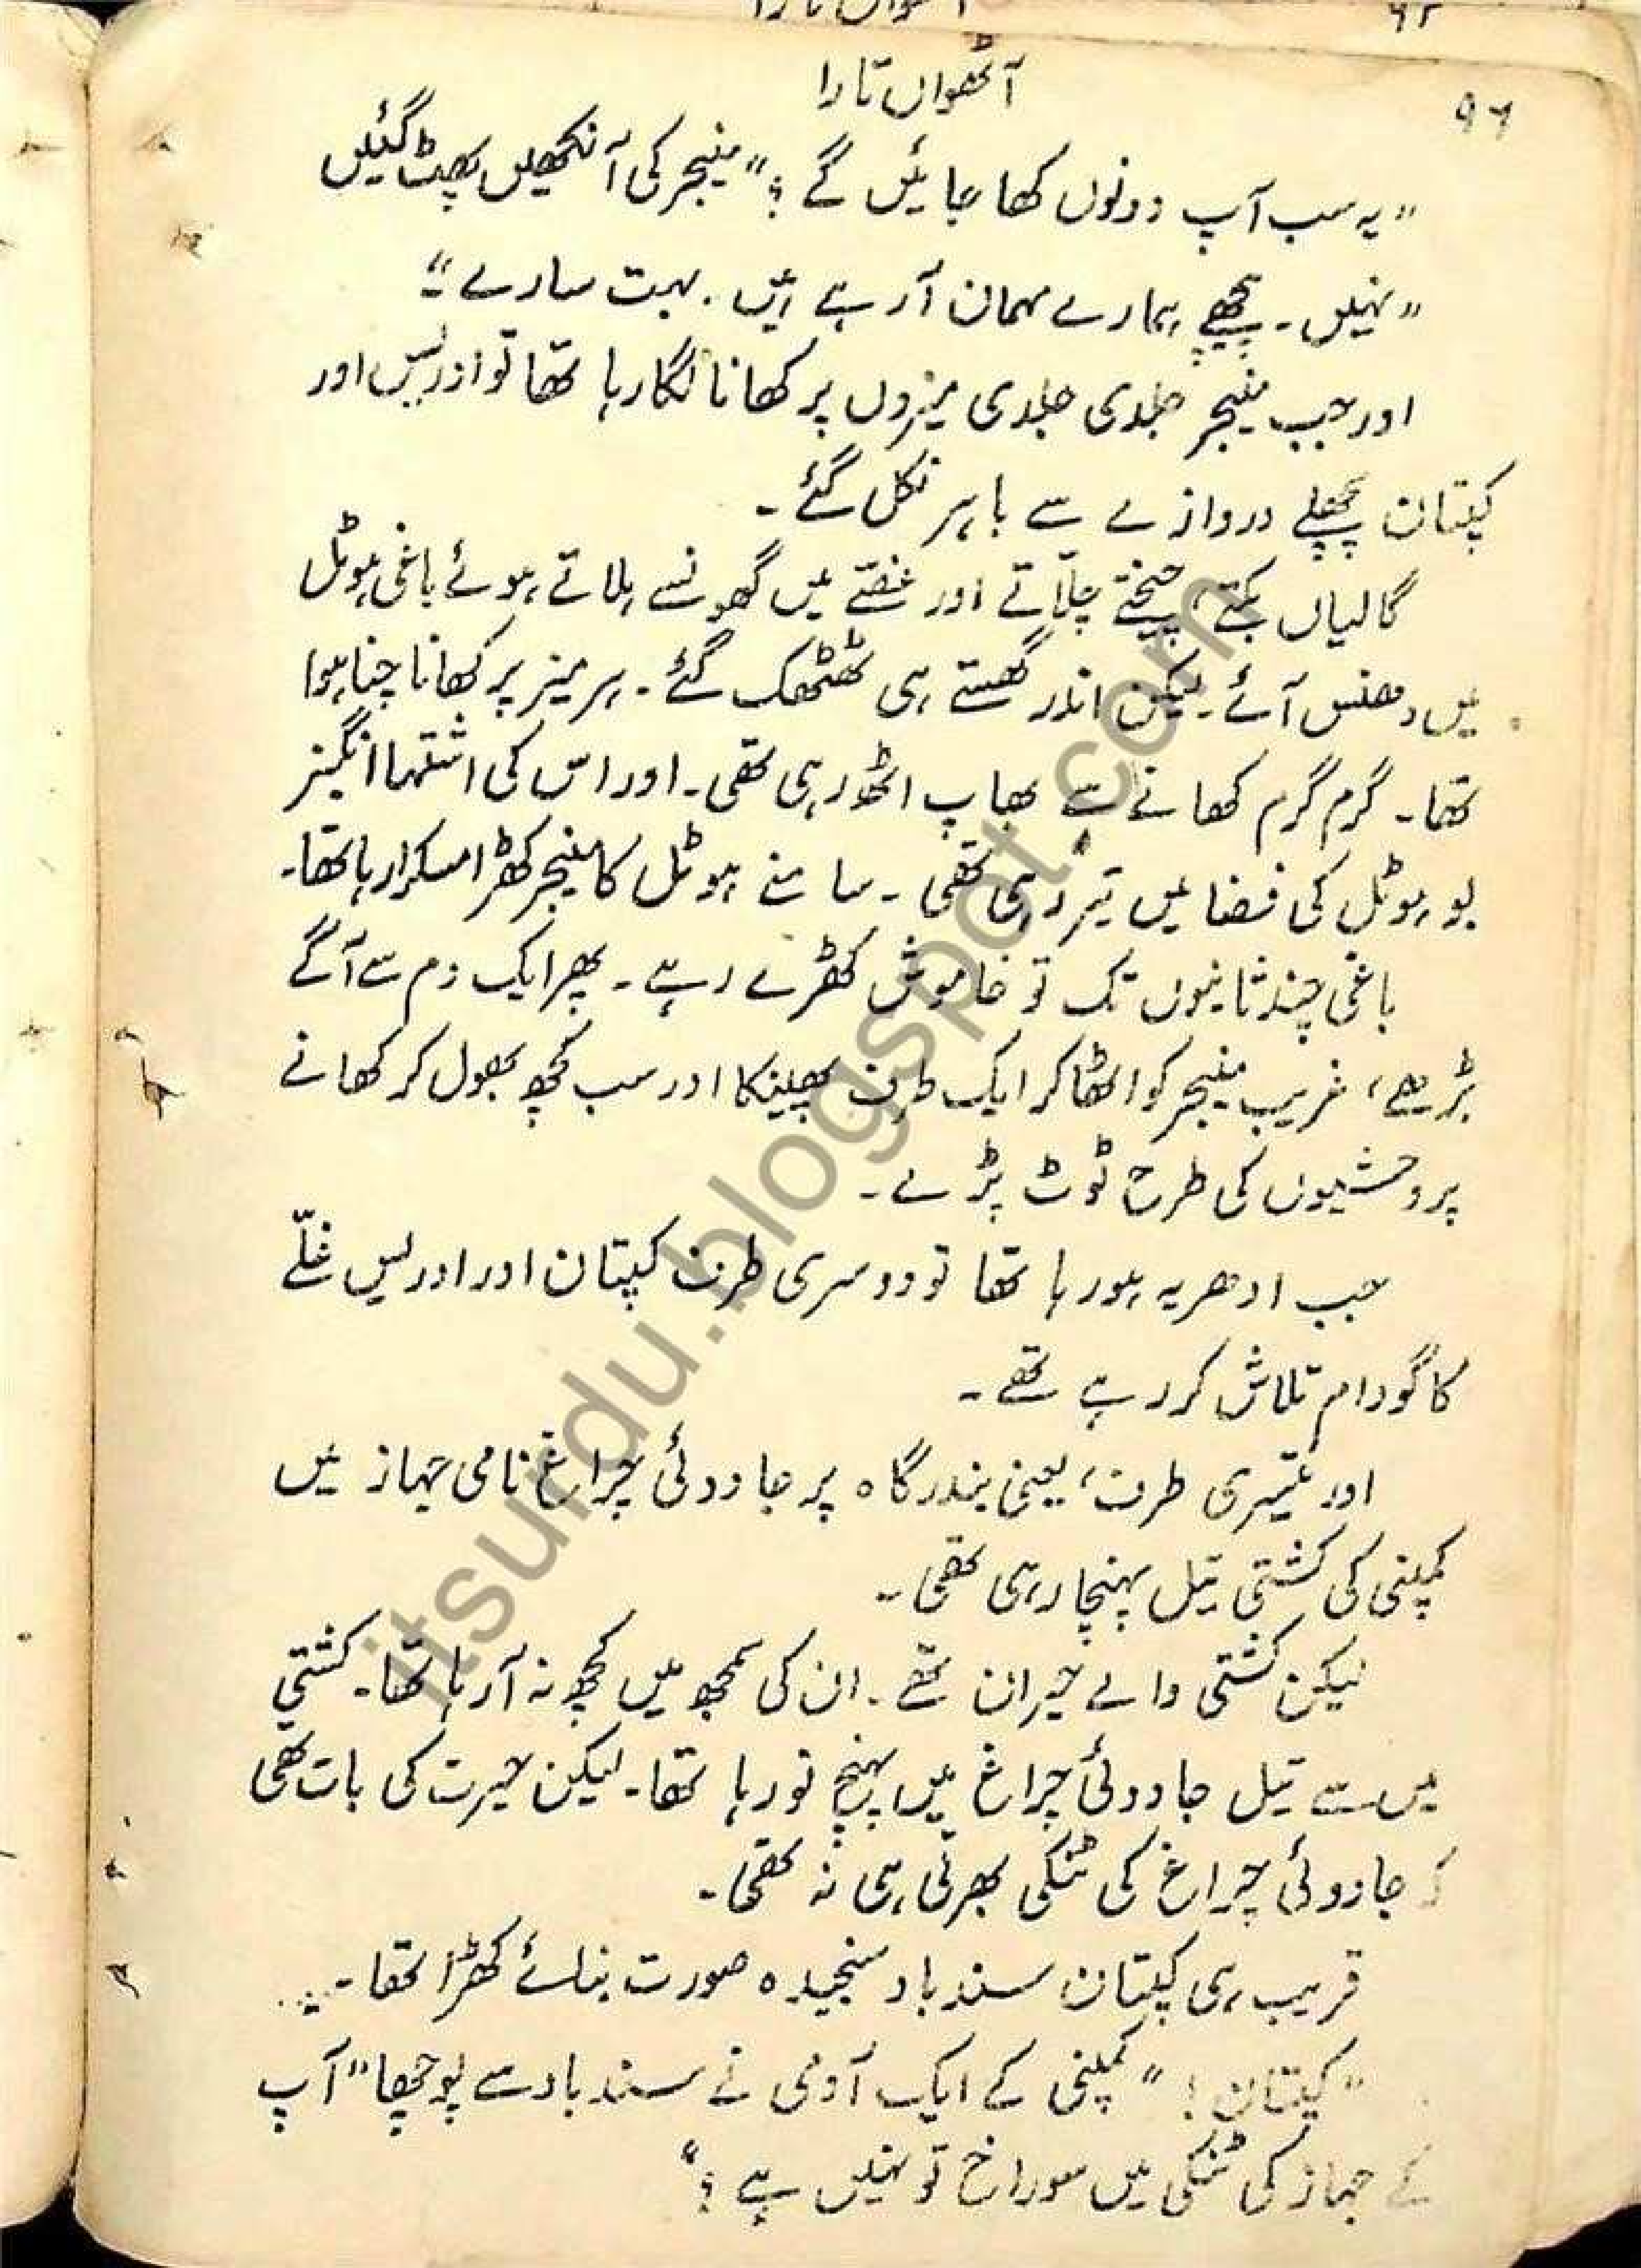 ۹۶
آٹھواں تارا
"یہ سب آپ دونوں کھا جائیں گے؟" منیجر کی آنکھیں پھٹ گئیں
"نہیں۔ پیچھے ہمارے مہمان آ رہے ہیں۔ بہت سارے"۔
اور جب منیجر جلدی جلدی میزوں پر کھانا لگا رہا تھا تو ادریس اور
کپتان پچھلے دروازے سے باہر نکل گئے۔
گالیاں بکتے، چیختے چلّاتے اور غصّے میں گھونسے ہلاتے ہوئے باغی ہوٹل
میں دھنس آئے۔ لیکن اندر گھستے ہی ٹھٹھک گئے۔ ہر میز پر کھانا چنا ہوا
تھا۔ گرم گرم کھانے سے بھاپ اٹھ رہی تھی۔ اور اس کی اشتہا انگیز
بو ہوٹل کی فضا میں تیر رہی تھی۔ سامنے ہوٹل کا منیجر کھڑا مسکرا رہا تھا۔
باغی چند ثانیوں تک تو خاموش کھڑے رہے۔ پھر ایک دم سے آگے
بڑھے، غریب منیجر کو اٹھا کر ایک طرف پھینکا اور سب کچھ بھول کر کھانے
پر وحشیوں کی طرح ٹوٹ پڑے۔
جب ادھر یہ ہو رہا تھا تو دوسری طرف کپتان اور ادریس غلّے
کا گودام تلاش کر رہے تھے۔
اور تیسری طرف، یعنی بندرگاہ پر جادوئی چراغ نامی جہاز میں
کمپنی کی کشتی تیل پہنچا رہی تھی۔
لیکن کشتی والے حیران تھے۔ ان کی سمجھ میں کچھ نہ آ رہا تھا۔ کشتی
میں سے تیل جادوئی چراغ میں پہنچ تو رہا تھا۔ لیکن حیرت کی بات تھی
کہ جادوئی چراغ کی ٹنکی بھرتی ہی نہ تھی۔
قریب ہی کپتان سندباد سنجیدہ صورت بنائے کھڑا تھا۔
"کپتان!" کمپنی کے ایک آدمی نے سندباد سے پوچھا "آپ
کے جہاز کی ٹنکی میں سوراخ تو نہیں ہے؟"
itsurdu.blogspot.com